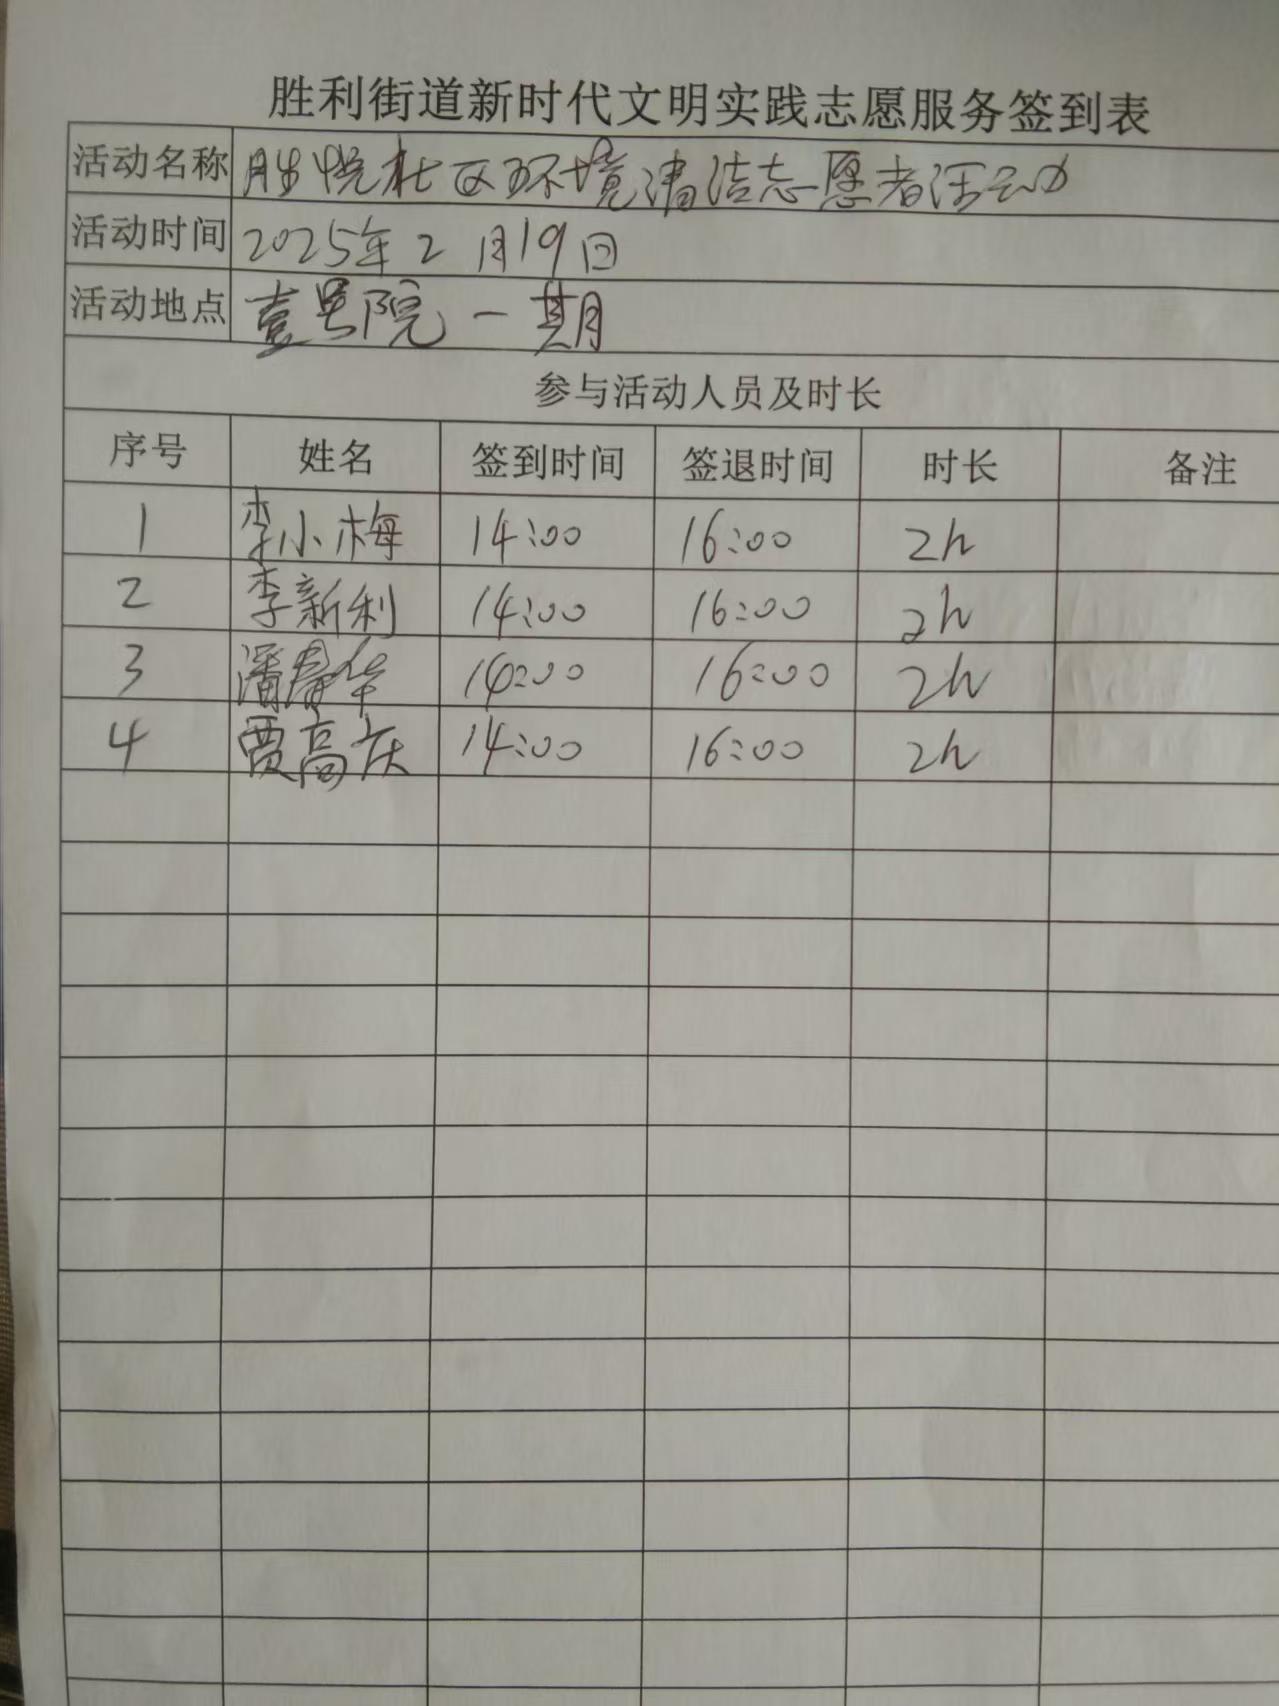 胜利街道新时代文明实践志愿服务签到表
活动名称 胜悦社区环境清洁志愿者活动
活动时间 2025年2月19日
活动地点 壹号院一期
参与活动人员及时长
序号 姓名 签到时间 签退时间 时长 备注
1 李小梅 14:00 16:00 2h
2 李新利 14:00 16:00 2h
3 潘春华 14:00 16:00 2h
4 贾高庆 14:00 16:00 2h